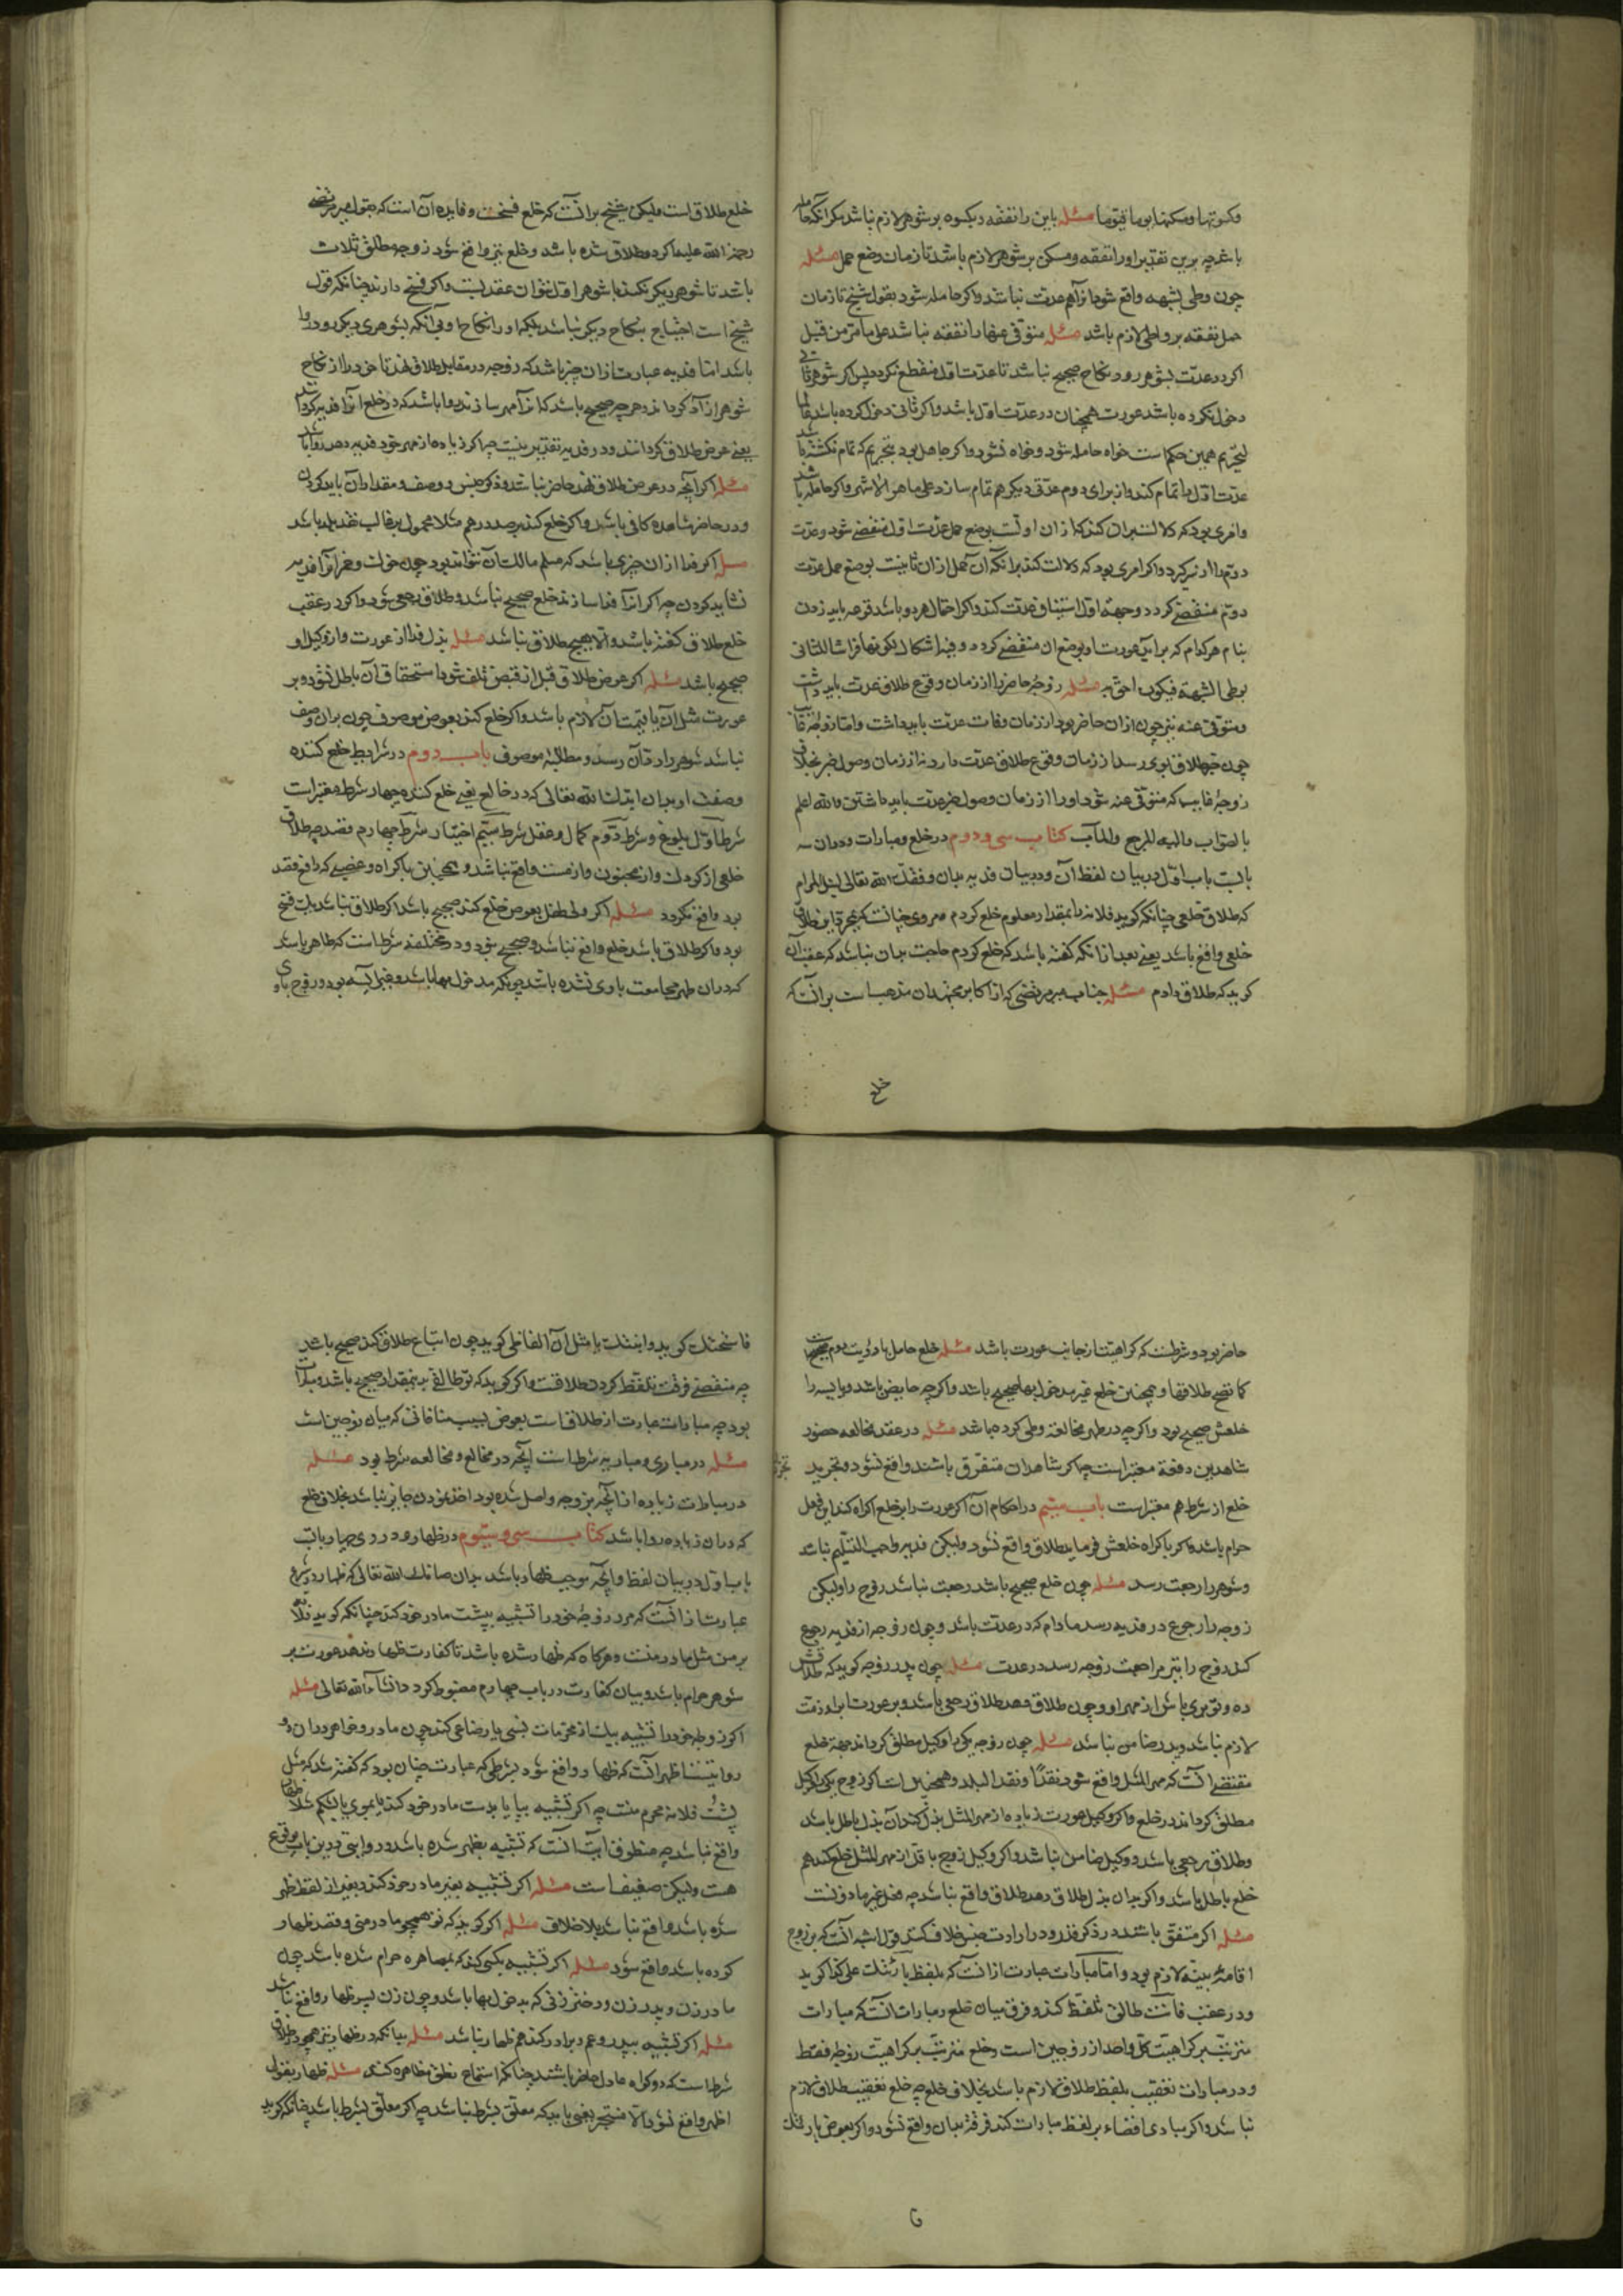 وکسوتها ومسکنها یوما فیوما مسئله باین را نفقه و کسوه بر شوهر لازم نباشد مکر آنکه حامله
باشد چه برین تقدیر اورا نفقه ومسکن بر شوهر لازم باشد تا زمان وضع حمل مسئله
چون وطی بشبهه واقع شود از آنهم عدت نباشد واکر حامله شود بقول شیخ تا زمان
حمل نفقه بر واطی لازم باشد مسئله متوفی عنها را نفقه نباشد علی ما مر من قبل
اکر در عدت بشوهر رود نکاح صحیح نباشد تا عدت اول منقطع نکردد پس اکر شوهر ثانی
دخول نکرده باشد عورت همچنان در عدت اول باشد واکر ثانی دخول کرده باشد عالما
بتحریم همین حکم است خواه حامله شود وخواه نشود واکر جاهل بود بتحریم که تمام نکشته باشد
عدت اول را تمام کند واز برای دوم عدتی دیکر هم تمام سازد علی ما هو الاشهر واکر حامله باشد
وامری بود که دلالت بر آن کند که از آن اولست بوضع حمل عدت اول منقضی شود وعدت
دوم را از سر کیرد واکر امری بود که دلالت کند بر آنکه آن حمل از آن ثانیست بوضع حمل عدت
دوم منقضی کردد وجهة اول استیناف عدت کند واکر احتمال هر دو باشد قرعه باید زدن
بنام هر کدام که برآید عورت او بوضع آن منقضی کردد وفیه اشکال لکونها فراشا للثانی
بوطی الشبهة فیکون احق به مسئله زوجه حاضر را از زمان وقوع طلاق عدت باید داشت
ومتوفی عنه نیز چون از آن حاضر بود از زمان وفات عدت باید داشت واما زوجه غایب
چون خبر طلاق بوی رسد از زمان وقوع طلاق عدت دارد نه از زمان وصول خبر بخلاف
زوجه غایب که متوفی عنه شود اورا از زمان وصول خبر عدت باید داشتن والله اعلم
بالصواب والیه المرجع والمآب کتاب سی ودوم در خلع ومبارات ودران سه
بابست باب اول در بیان لفظ آن ودر بیان فدیه بدان وفقک الله تعالی لنیل المرام
که طلاق خلعی چنانکه کوید فلانه را بمقدار معلوم خلع کردم مروی چنانست که بمجرد این طلاق
خلعی واقع باشد یعنی بعد از آنکه کفته باشد که خلع کردم حاجت بدان نباشد که عقب آن
کوید که طلاق دادم مسئله جناب میر مرتضی که از اکابر مجتهدان مذهب است بر آنست که
خلع
خلع طلاق است ولیکن شیخ بر آنست که خلع فسخست وفایده آن است که بقول میر مرتضی
رحمة الله علیه اکر دو طلاق شده باشد وخلع نیز واقع شود زوجه مطلق ثلاث
باشد تا شوهر دیکر نکند با شوهر اول نتوان عقد بست واکر فسخ دارند چنانکه قول
شیخ است احتیاج بنکاح دیکری نباشد بلکه اورا نکاح او بی آنکه بشوهری دیکر رود روا
باشد اما فدیه عبارت از آن چیز باشد که زوجه در مقابل طلاق نهد تا خود را از نکاح
شوهر آزاد کرداند وهر چه صحیح باشد که آنرا مهر سازند روا باشد که در خلع آنرا فدیه کردانند
یعنی عوض طلاق کردانند ودر فدیه تقدیر نیست چه اکر زیاده از مهر خود فدیه دهد روا باشد
مسئله اکر آنچه در عوض طلاق نهد حاضر نباشد ذکر جنس ووصف ومقدار آن باید کردن
ودر حاضر مشاهده کافی باشد واکر خلع کند بر صد درهم مثلا محمول بر غالب نقد بلد باشد
مسئله اکر فدا از آن چیزی باشد که مسلم مالک آن نتواند بود چون خوک وخمر آنرا فدیه
نشاید کردن چه اکر آنرا فدا سازند خلع صحیح نباشد وطلاق رجعی شود واکر در عقب
خلع طلاق کفته باشد والا هیچ طلاق نباشد مسئله بذل فدا از عورت واز وکیل او
صحیح باشد مسئله اکر عوض طلاق قبل از قبض تلف شود استحقاق آن باطل نشود وبر
عورت مثل آن یا قیمت آن لازم باشد واکر خلع کند بعوض موصوف چون بر آن وصف
نباشد شوهر را رد آن رسد ومطالبه موصوف باب دوم در شرایط خلع کننده
وصفت او بدان ایدک الله تعالی که در خالع یعنی خلع کننده چهار شرط معتبر است
شرط اول بلوغ وشرط دوم کمال وعقل شرط سیّم اختیار شرط چهارم قصد چه طلاق
خلعی از کودک واز مجنون واز مست واقع نباشد وهمچنین باکراه وغضبی که دافع قصد
بود واقع نکردد مسئله اکر ولی طفل بعوض خلع کند صحیح باشد اکر طلاق نباشد بلک فسخ
بود واکر طلاق باشد خلع واقع نباشد وصحیح نبود ودر مختلعه شرط است که طاهر باشد
که در آن طهر مجامعت با وی نشده باشد چونکه مدخول بها باشد وغیر آیسه بود وزوج با وی
حاضر بود وشرطست که کراهیت از جانب عورت باشد مسئله خلع حامل با رؤیت دم صحیح است
کما تقع طلاقها وهمچنین خلع غیر مدخول بها صحیح باشد واکرچه حایض باشد ویایسه را
خلعش صحیح بود واکرچه در طهر مخالعه وطی کرده باشد مسئله در عقد مخالعه حضور
شاهدین دفعة معتبر است چه اکر شاهدان متفرق باشند واقع نشود وتجرید
خلع از شرط هم معتبر است باب سیّم در احکام آن اکر عورت را بر خلع اکراه کند این فعل
حرام باشد واکر باکراه خلعش فرماید طلاق واقع نشود ولیکن فدیه واجب التسلیم نباشد
وشوهر را رجعت رسد مسئله چون خلع صحیح باشد رجعت نباشد زوج را ولیکن
زوجه را رجوع در فدیه رسد مادام که در عدت باشد وچون زوجه از فدیه رجوع
کند زوج را نیز مراجعت زوجه رسد در عدت مسئله چون پدر زوجه کوید که طلاقش
ده وتو بری باش از مهر او وچون طلاق دهد طلاق رجعی باشد وبر عورت ابراء ذمت
لازم نباشد وپدر ضامن نباشد مسئله چون زوجه یکی را وکیل مطلق کرداند جهة خلع
مقتضی آنست که مهر المثل واقع شود نقدا ونقد البلد وهمچنین است اکر زوج یکی را وکیل
مطلق کرداند در خلع واکر وکیل عورت زیاده از مهر المثل بذل کند آن بذل باطل باشد
وطلاق رجعی باشد ووکیل ضامن نباشد واکر وکیل زوج باقل از مهر المثل خلع کند هم
خلع باطل باشد واکر بدان بذل طلاق دهد طلاق واقع نباشد چه فعل غیر ماذونست
مسئله اکر متفق باشند در ذکر قدر ودر ارادت جنس خلاف کنند قول اشبه آنست که بر زوج
اقامت بینه لازم بود واما مبارات عبارت از آنست که بلفظ بارئتک علی کذا کوید
ودر عقب فانت طالق تلفظ کند وفرق میان خلع ومبارات آنست که مبارات
مترتب بر کراهیت کل واحد از زوجین است وخلع مترتب بر کراهیت زوجه فقط
ودر مبارات تعقیب بلفظ طلاق لازم باشد بخلاف خلع چه خلع تعقیب طلاق لازم
نباشد واکر مبادی اقتضاء بر لفظ مبارات کند فرقة بدان واقع نشود واکر بعوض بارئتک
فا
فاسختک کوید وابنتک یا مثل آن الفاظی کوید چون اتباع طلاق کند صحیح باشد
چه منقضی فرقت تلفظ کردن طلاقست واکر کوید که تو طالقی بدینمقدار صحیح باشد ومبارات
بود چه مبارات عبارت از طلاق است بعوض بسبب منافاتی که میان زوجین است
مسئله در مباری ومباریه شرط است آنچه در مخالع ومخالعه شرط بود مسئله
در مبارات زیاده از آنچه بزوجه واصل شده بود اخذ نمودن جایز نباشد بخلاف خلع
که در آن زیاده روا باشد کتاب سی وسیّوم در ظهار ودر وی چهار بابست
باب اول در بیان لفظ وآنچه موجب ظهار باشد بدان صانک الله تعالی که ظهار در شرع
عبارت از آنست که مرد زوجه خود را تشبیه بپشت مادر خود کند چنانکه کوید فلانه
بر من مثل مادر منست وهرکاه که ظهار شده باشد تا کفارت ظهار ندهد عورت بر
شوهر حرام باشد وبیان کفارت در باب چهارم مضبوط کردد انشاء الله تعالی مسئله
اکر زوجه خود را تشبیه بیک از محرمات نسبی یا رضاعی کند چون مادر وخواهر در آن دو
روایتست اظهر آنست که ظهار واقع شود بشرطی که عبارت چنان بود که کفته شد که مثل
پشت فلانه محرم منست چه اکر تشبیه بپا یا بدست مادر خود کند یا بموی یا شکم مثلا ظهار
واقع نباشد چه منطوق آیت آنست که تشبیه بظهر شده باشد وروایتی درین باب بوقوع
هست ولیکن ضعیف است مسئله اکر تشبیه بغیر مادر خود کند وبغیر از لفظ ظهر
شده باشد واقع نباشد بلا خلاف مسئله اکر کوید که تو همچو مادر منی وقصد ظهار
کرده باشد واقع شود مسئله اکر تشبیه بکسی کند که بمصاهره حرام شده باشد چون
مادر زن وپدر زن ودختر زنی که مدخول بها باشد وچون زن پسر ظهار واقع نباشد
مسئله اکر تشبیه بپدر وعم وبرادر کند هم ظهار نباشد مسئله بدانکه در ظهار نیز همچو طلاق
شرط است که دو کواه عادل حاضر باشند چنانکه استماع نطق مظاهره کنند مسئله ظهار بقول
اظهر واقع نشود الا منتجز یعنی باید که معلق بشرط نباشد چه اکر معلق بشرط باشد چنانکه کوید